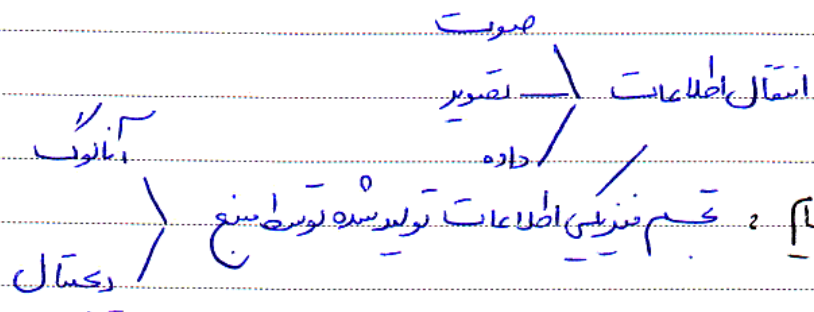 صوت
انتقال اطلاعات تصویر
داده
آنالوگ
: تجسم فیزیکی اطلاعات تولید شده توسط منبع
دیجیتال